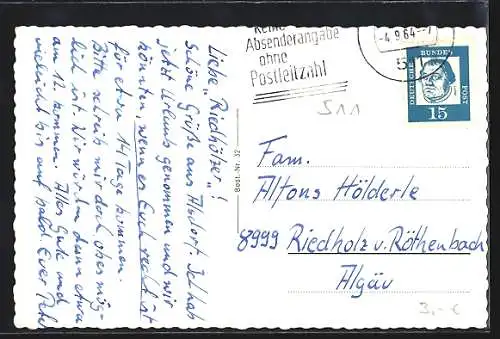 Liebe "Riedhölzer"!
Schöne Grüße aus Alsdorf. Ich hab
jetzt Urlaub genommen und wir
könnten, wenn es Euch recht ist
für etwa 14 Tage kommen.
Bitte schreib mir doch, ob es mög-
lich ist. Wir würden dann etwa
am 12. kommen. Alles Gute und
vielleicht bis auf bald. Euer
Keine
Absenderangabe
ohne
Postleitzahl
-4.9.64-7
DEUTSCHE
BUNDES
POST
15
511
Best.-Nr. 32
Fam.
Alfons Hölderle
8999 Riedholz v. Röthenbach
Algäu
3,- €